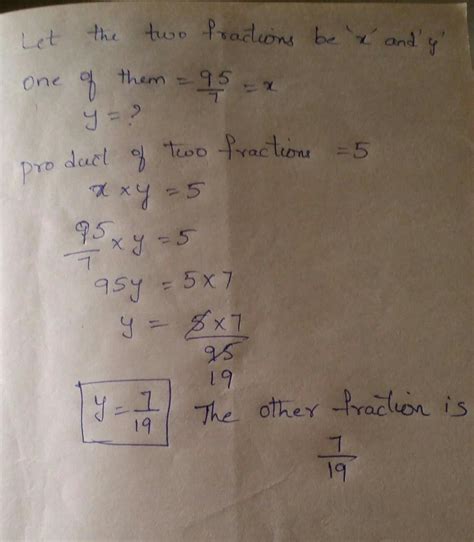 Let the two fractions be 'x' and 'y'
one of them = 95/7 = x
y = ?
product of two fractions = 5
x × y = 5
95/7 × y = 5
95y = 5 × 7
y = 5 × 7 / 95
19
y = 7/19 The other fraction is
7/19